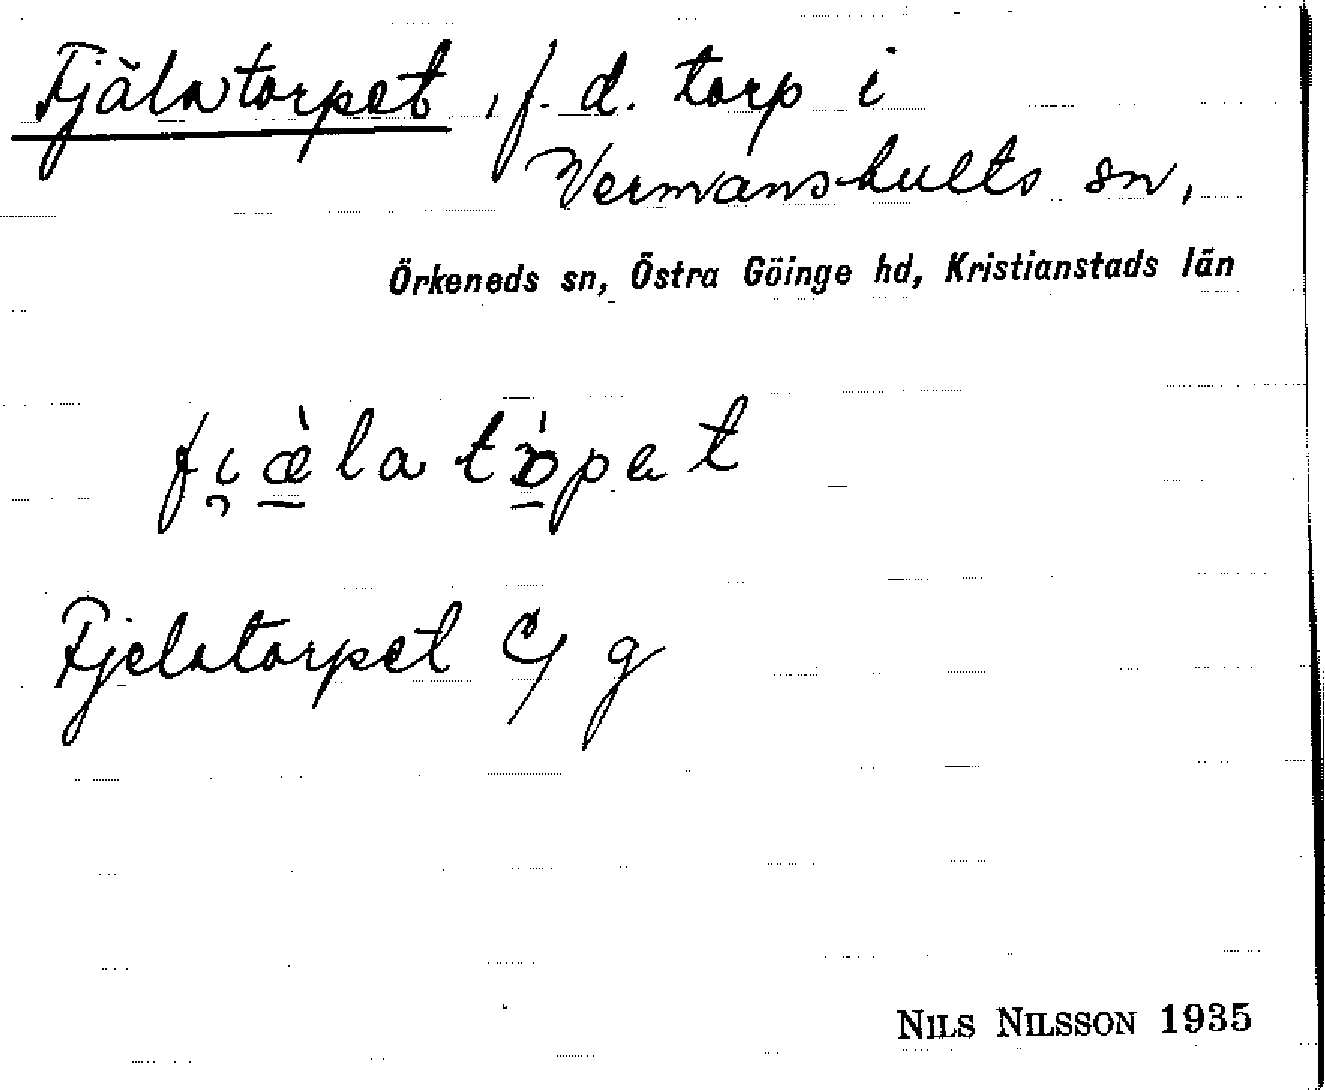 Fjälatorpet, f. d. torp i
Vermanshults sn,
Örkeneds sn, Östra Göinge hd, Kristianstads län
fi̯æ̀latɔ̀pat
Fjelatorpet g
NILS NILSSON 1935